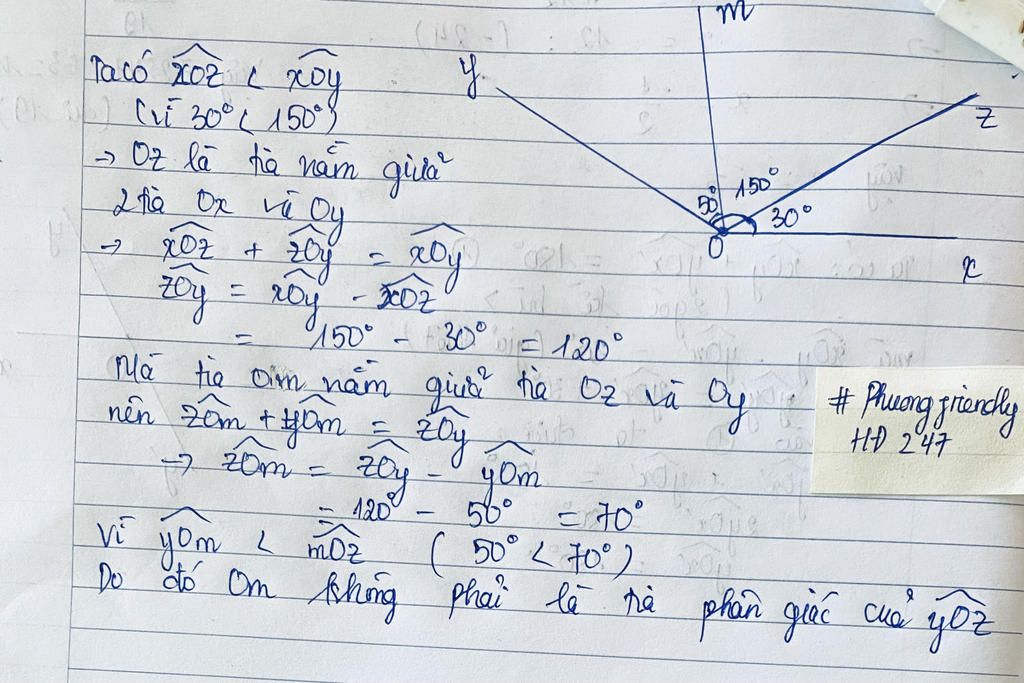 m
Ta có xOz < xOy
y
z
(vì 30° < 150°)
→ Oz là tia nằm giữa
150°
50°
30°
2 tia Ox và Oy
O
x
→ xOz + zOy = xOy
zOy = xOy - xOz
= 150° - 30° = 120°
Mà tia Om nằm giữa tia Oz và Oy
nên zOm + yOm = zOy
→ zOm = zOy - yOm
= 120° - 50° = 70°
# Phuong friendly
HD 247
Vì yOm < mOz (50° < 70°)
Do đó Om không phải là tia phân giác của yOz